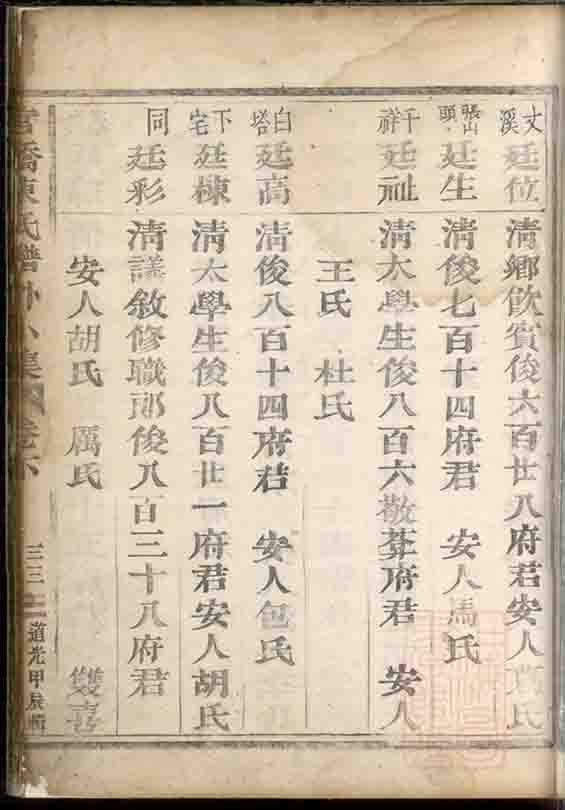 文溪 廷位 清鄉飲賓俊六百廿八府君安人
張山頭 廷生 清俊七百十四府君 安人馮氏
千祥 廷祉 清太學生俊八百六敬莘府君 安人
王氏 杜氏
白塔 廷高 清俊八百十四府君 安人包氏
下宅 廷棟 清太學生俊八百廿一府君安人胡氏
同 廷彩 清議敘修職郎俊八百三十八府君
安人胡氏 厲氏 雙喜
橋陳氏譜外集 卷下 三三 道光甲辰輯